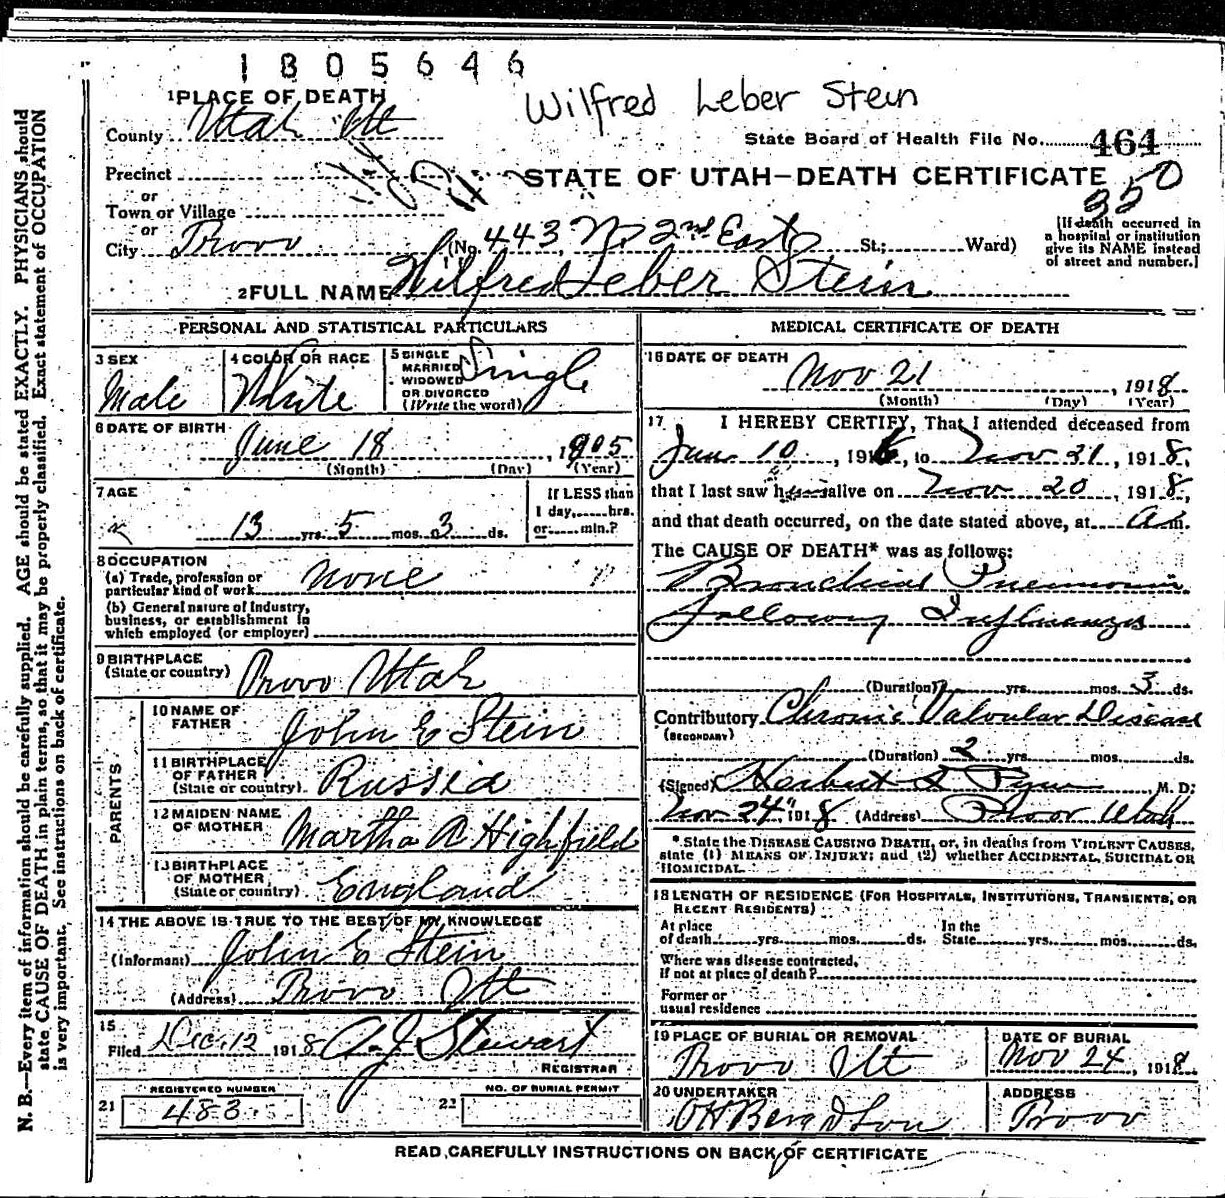 1805646
Wilfred Leber Stein
1 PLACE OF DEATH
County Utah Ut
State Board of Health File No. 464
Precinct
STATE OF UTAH—DEATH CERTIFICATE
350
or
Town or Village
or
City Provo (No. 443 No 2nd East St.; Ward)
[If death occurred in
a hospital or institution
give its NAME instead
of street and number.]
2 FULL NAME Wilfred Leber Stein
PERSONAL AND STATISTICAL PARTICULARS
3 SEX
Male
4 COLOR OR RACE
White
5 SINGLE
MARRIED
WIDOWED
OR DIVORCED
(Write the word)
Single
6 DATE OF BIRTH
June 18, 1905
(Month) (Day) (Year)
7 AGE
13 yrs. 5 mos. 3 ds.
If LESS than
1 day, hrs.
or min.?
8 OCCUPATION
(a) Trade, profession or
particular kind of work none
(b) General nature of Industry,
business, or establishment in
which employed (or employer)
9 BIRTHPLACE
(State or country) Provo Utah
PARENTS
10 NAME OF
FATHER John E Stein
11 BIRTHPLACE
OF FATHER
(State or country) Russia
12 MAIDEN NAME
OF MOTHER Martha A Highfield
13 BIRTHPLACE
OF MOTHER
(State or country) England
14 THE ABOVE IS TRUE TO THE BEST OF MY KNOWLEDGE
(Informant) John E Stein
(Address) Provo Ut
15
Filed Dec. 12 1918 A. J. Stewart
REGISTRAR
REGISTERED NUMBER
21 483
NO. OF BURIAL PERMIT
22
MEDICAL CERTIFICATE OF DEATH
16 DATE OF DEATH
Nov 21, 1918
(Month) (Day) (Year)
17 I HEREBY CERTIFY, That I attended deceased from
Jan 10, 1916, to Nov 21, 1918,
that I last saw him alive on Nov 20, 1918,
and that death occurred, on the date stated above, at a m.
The CAUSE OF DEATH* was as follows:
Bronchial Pneumonia
following Influenza
(Duration) yrs. mos. 3 ds.
Contributory Chronic Valvular Disease
(SECONDARY)
(Duration) 2 yrs. mos. ds.
(Signed) Herbert S Pyne, M. D.
Nov 24" 1918 (Address) Provo Utah
*State the DISEASE CAUSING DEATH, or, in deaths from VIOLENT CAUSES,
state (1) MEANS OF INJURY; and (2) whether ACCIDENTAL, SUICIDAL OR
HOMICIDAL.
18 LENGTH OF RESIDENCE (FOR HOSPITALS, INSTITUTIONS, TRANSIENTS, OR
RECENT RESIDENTS)
At place
of death yrs. mos. ds.
In the
State yrs. mos. ds.
Where was disease contracted,
If not at place of death?
Former or
usual residence
19 PLACE OF BURIAL OR REMOVAL
Provo Ut
DATE OF BURIAL
Nov 24, 1918
20 UNDERTAKER
O H Berg & Son
ADDRESS
Provo
READ CAREFULLY INSTRUCTIONS ON BACK OF CERTIFICATE
N. B.—Every item of information should be carefully supplied. AGE should be stated EXACTLY. PHYSICIANS should
state CAUSE OF DEATH in plain terms, so that it may be properly classified. Exact statement of OCCUPATION
is very important. See instructions on back of certificate.